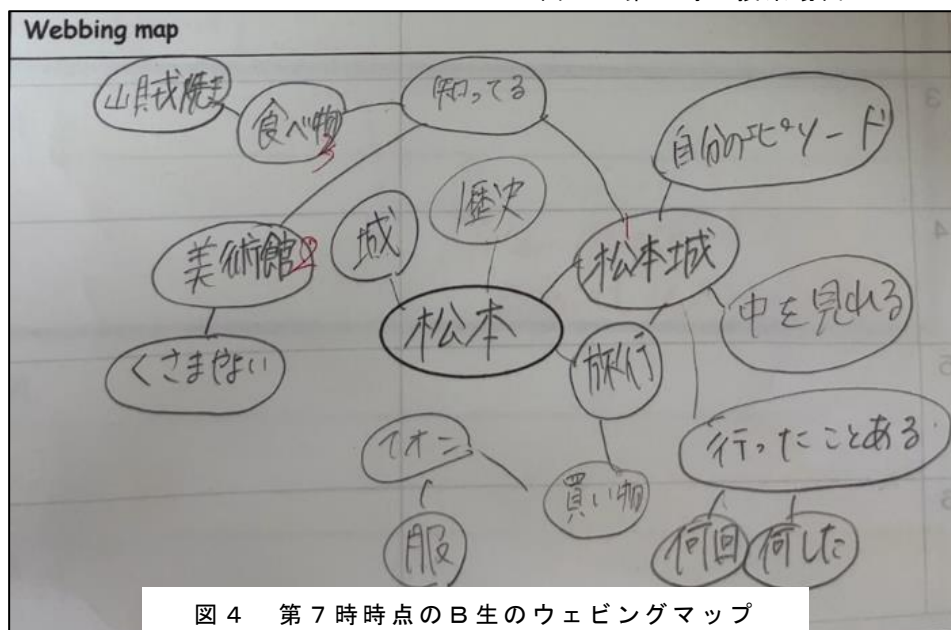 Webbing map
山賊焼き
食べ物
3
知ってる
自分のエピソード
美術館
2
城
歴史
1
松本城
松本
中を見れる
くさまやよい
旅行
行ったことある
イオン
買い物
服
何回
何した
図4 第7時時点のB生のウェビングマップ